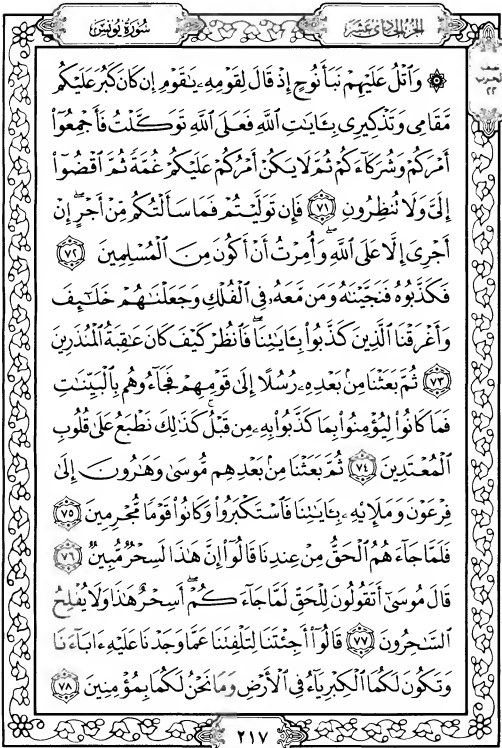 سُورَةُ يُونُسَ
الجُزءُ الحَادِي عَشَرَ
نصف
الحزب
٢٢
۞ وَٱتْلُ عَلَيْهِمْ نَبَأَ نُوحٍ إِذْ قَالَ لِقَوْمِهِۦ يَٰقَوْمِ إِن كَانَ كَبُرَ عَلَيْكُم
مَّقَامِى وَتَذْكِيرِى بِـَٔايَٰتِ ٱللَّهِ فَعَلَى ٱللَّهِ تَوَكَّلْتُ فَأَجْمِعُوٓا۟
أَمْرَكُمْ وَشُرَكَآءَكُمْ ثُمَّ لَا يَكُنْ أَمْرُكُمْ عَلَيْكُمْ غُمَّةً ثُمَّ ٱقْضُوٓا۟
إِلَىَّ وَلَا تُنظِرُونِ ٧١ فَإِن تَوَلَّيْتُمْ فَمَا سَأَلْتُكُم مِّنْ أَجْرٍ ۖ إِنْ
أَجْرِىَ إِلَّا عَلَى ٱللَّهِ ۖ وَأُمِرْتُ أَنْ أَكُونَ مِنَ ٱلْمُسْلِمِينَ ٧٢
فَكَذَّبُوهُ فَنَجَّيْنَٰهُ وَمَن مَّعَهُۥ فِى ٱلْفُلْكِ وَجَعَلْنَٰهُمْ خَلَٰٓئِفَ
وَأَغْرَقْنَا ٱلَّذِينَ كَذَّبُوا۟ بِـَٔايَٰتِنَا ۖ فَٱنظُرْ كَيْفَ كَانَ عَٰقِبَةُ ٱلْمُنذَرِينَ
٧٣ ثُمَّ بَعَثْنَا مِنۢ بَعْدِهِۦ رُسُلًا إِلَىٰ قَوْمِهِمْ فَجَآءُوهُم بِٱلْبَيِّنَٰتِ
فَمَا كَانُوا۟ لِيُؤْمِنُوا۟ بِمَا كَذَّبُوا۟ بِهِۦ مِن قَبْلُ ۚ كَذَٰلِكَ نَطْبَعُ عَلَىٰ قُلُوبِ
ٱلْمُعْتَدِينَ ٧٤ ثُمَّ بَعَثْنَا مِنۢ بَعْدِهِم مُّوسَىٰ وَهَٰرُونَ إِلَىٰ
فِرْعَوْنَ وَمَلَإِي۟هِۦ بِـَٔايَٰتِنَا فَٱسْتَكْبَرُوا۟ وَكَانُوا۟ قَوْمًا مُّجْرِمِينَ ٧٥
فَلَمَّا جَآءَهُمُ ٱلْحَقُّ مِنْ عِندِنَا قَالُوٓا۟ إِنَّ هَٰذَا لَسِحْرٌ مُّبِينٌ ٧٦
قَالَ مُوسَىٰٓ أَتَقُولُونَ لِلْحَقِّ لَمَّا جَآءَكُمْ ۖ أَسِحْرٌ هَٰذَا وَلَا يُفْلِحُ
ٱلسَّٰحِرُونَ ٧٧ قَالُوٓا۟ أَجِئْتَنَا لِتَلْفِتَنَا عَمَّا وَجَدْنَا عَلَيْهِ ءَابَآءَنَا
وَتَكُونَ لَكُمَا ٱلْكِبْرِيَآءُ فِى ٱلْأَرْضِ وَمَا نَحْنُ لَكُمَا بِمُؤْمِنِينَ ٧٨
٢١٧